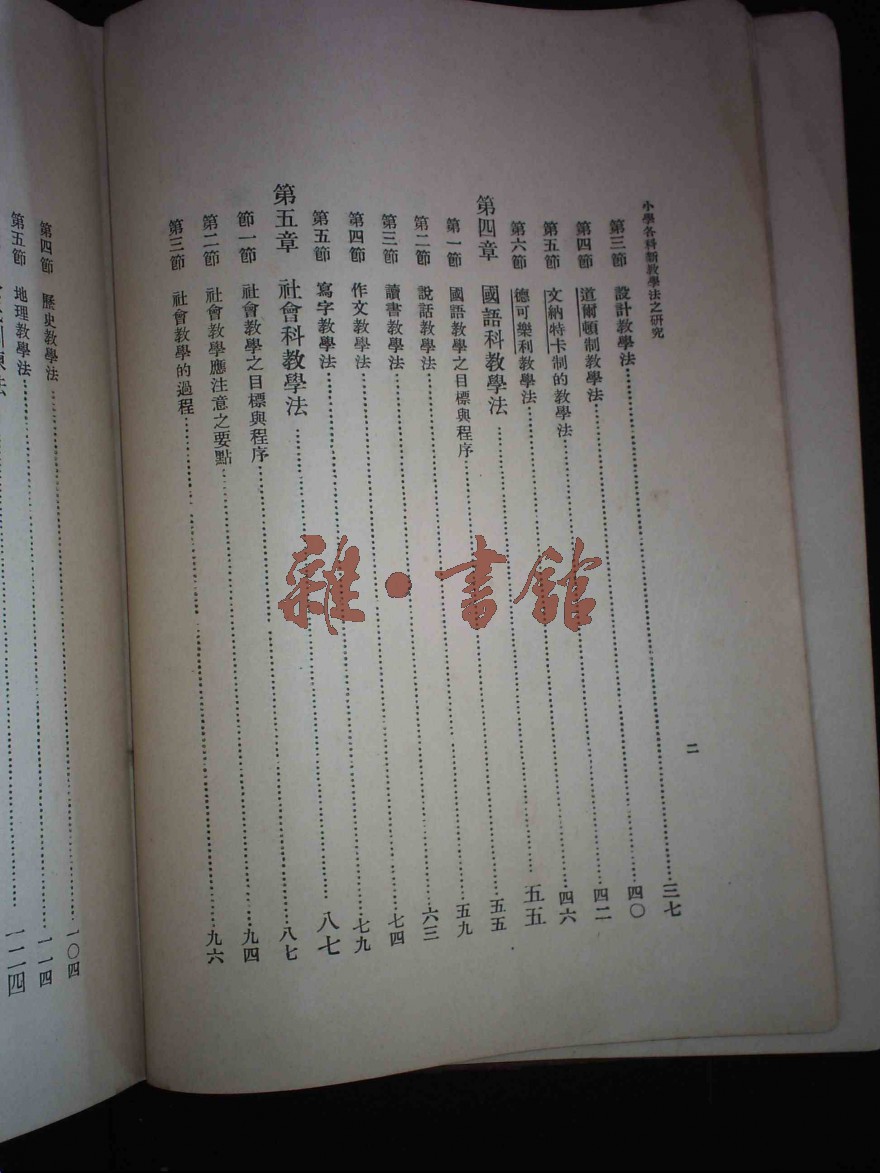 小學各科新教學法之研究 二
第三節 設計教學法……三七
第四節 道爾頓制教學法……四〇
第五節 文納特卡制的教學法……四二
第六節 德可樂利教學法……四六
第四章 國語科教學法……五五
第一節 國語教學之目標與程序……五五
第二節 說話教學法……五九
第三節 讀書教學法……六三
第四節 作文教學法……七四
第五節 寫字教學法……七九
第五章 社會科教學法……八七
節一節 社會教學之目標與程序……八七
第二節 社會教學應注意之要點……九四
第三節 社會教學的過程……九六
第四節 歷史教學法……一〇四
第五節 地理教學法……一一四
一二四
雜·書館